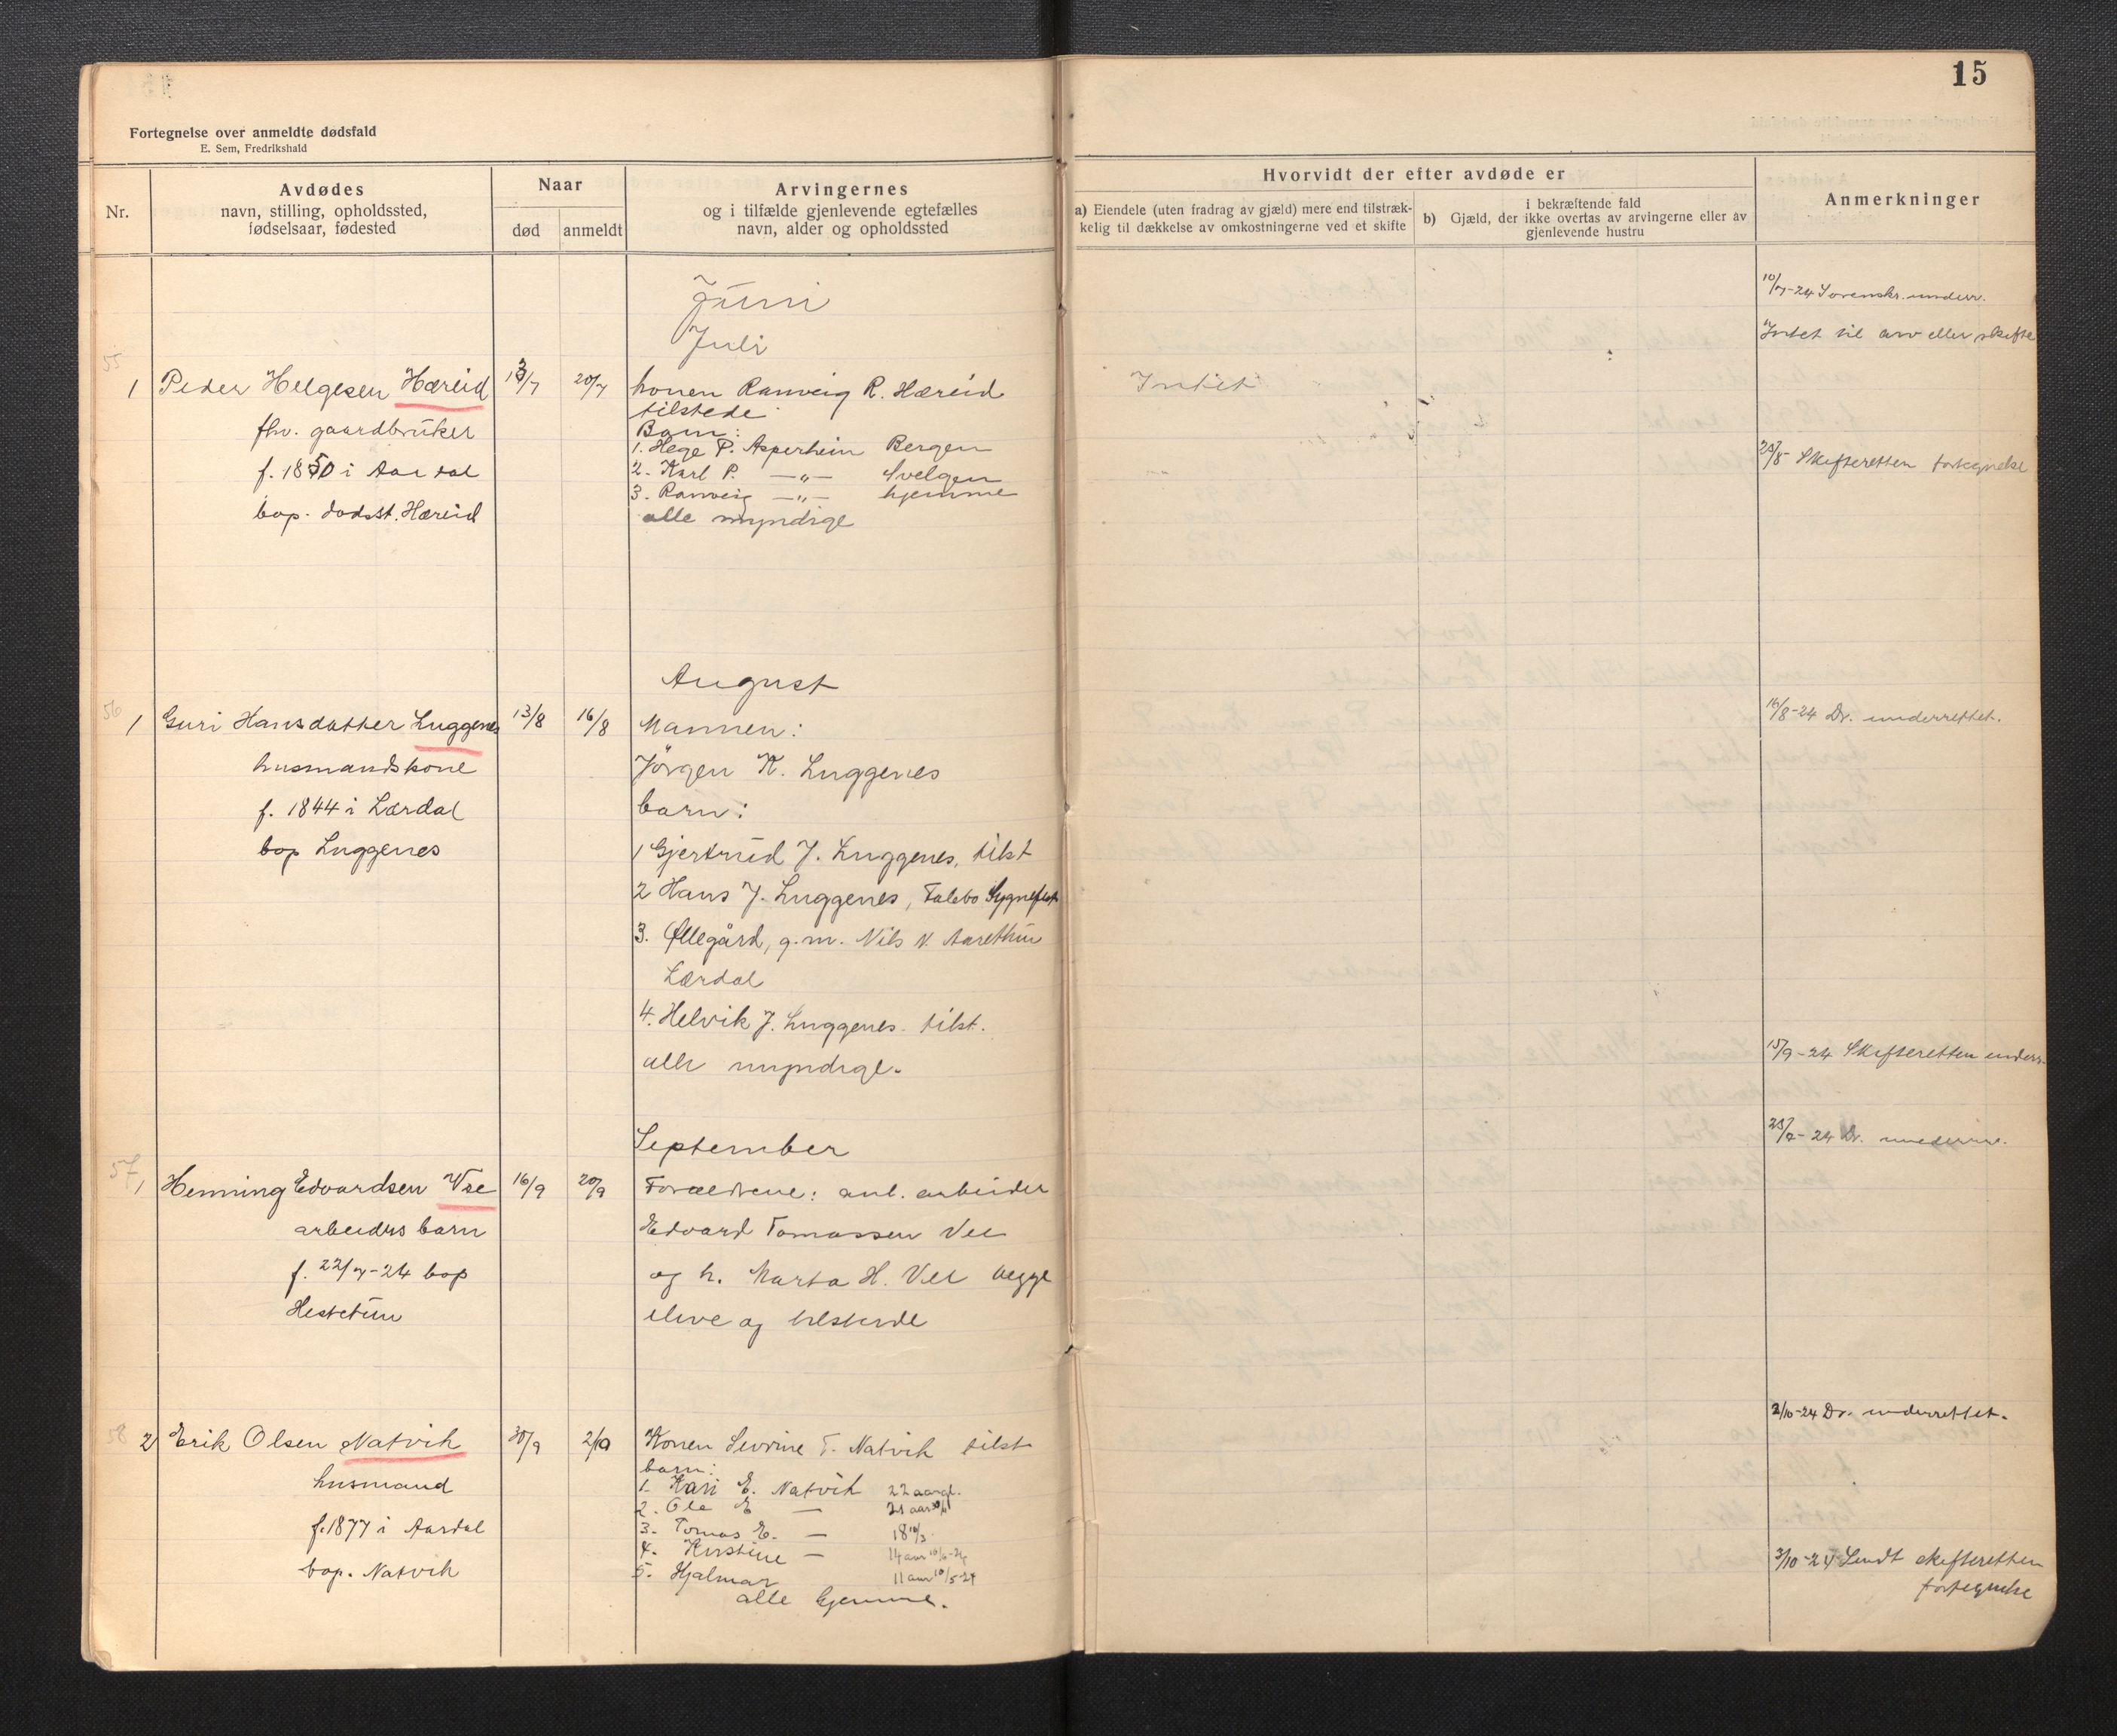 15
Fortegnelse over anmeldte dødsfald
E. Sem, Fredrikshald
Nr.
Avdødes
navn, stilling, opholdssted,
fødselsaar, fødested
Naar
død
anmeldt
Arvingernes
og i tilfælde gjenlevende egtefælles
navn, alder og opholdssted
Hvorvidt der efter avdøde er
a) Eiendele (uten fradrag av gjæld) mere end tilstræk-
kelig til dækkelse av omkostningerne ved et skifte
i bekræftende fald
b) Gjæld, der ikke overtas av arvingerne eller av
gjenlevende hustru
Anmerkninger
Juni
Juli
55
1 Peder Helgesen Hæreid
fhv. gaardbruker
f. 1850 i Aardal
bop. dødsst. Hæreid
13/7
20/7
konen Ranveig R. Hæreid
tilstede
Barn:
1. Hege P. Asperheim Bergen
2. Karl P. —"— Svelgen
3. Ranveig —"— hjemme
alle myndige
Intet
10/7-24 Sorenskr. underr.
Intet til arv eller skifte
25/8 Skifteretten fortegnelse
August
56
1 Guri Hansdatter Luggenes
husmandskone
f. 1844 i Lærdal
bop Luggenes
13/8
16/8
Mannen:
Jörgen K. Luggenes
barn:
1 Gjertrud J. Luggenes, tilst
2 Hans J. Luggenes, Falebo
3. Øllegård, g.m. Nils N. Aarethun
Lærdal
4. Helvik J. Luggenes. tilst.
alle myndige.
16/8-24 Dr. underrettet.
15/9-24 Skifteretten underr.
September
57
1 Henning Edvardsen Vee
arbeiders barn
f. 22/7-24 bop
Hestetun
16/9
20/9
Forældrene: anl. arbeider
Edvard Tomassen Vee
og h. Marta H. Vee begge
ilive og tilstede
24 Dr.
58
2 Erik Olsen Natvik
husmand
f. 1877 i Aardal
bop. Natvik
30/9
2/10
Konen Sevrine T. Natvik tilst
barn:
1. Kari E. Natvik 22 aar gl.
2. Ole E — 21 aar
3. Tomas E. — 18
4. Kirstine — 14 aar
5. Hjalmar 11 aar 10/5-24
alle hjemme.
2/10-24 Dr. underrettet.
3/10-24 Sendt skifteretten
fortegnelse